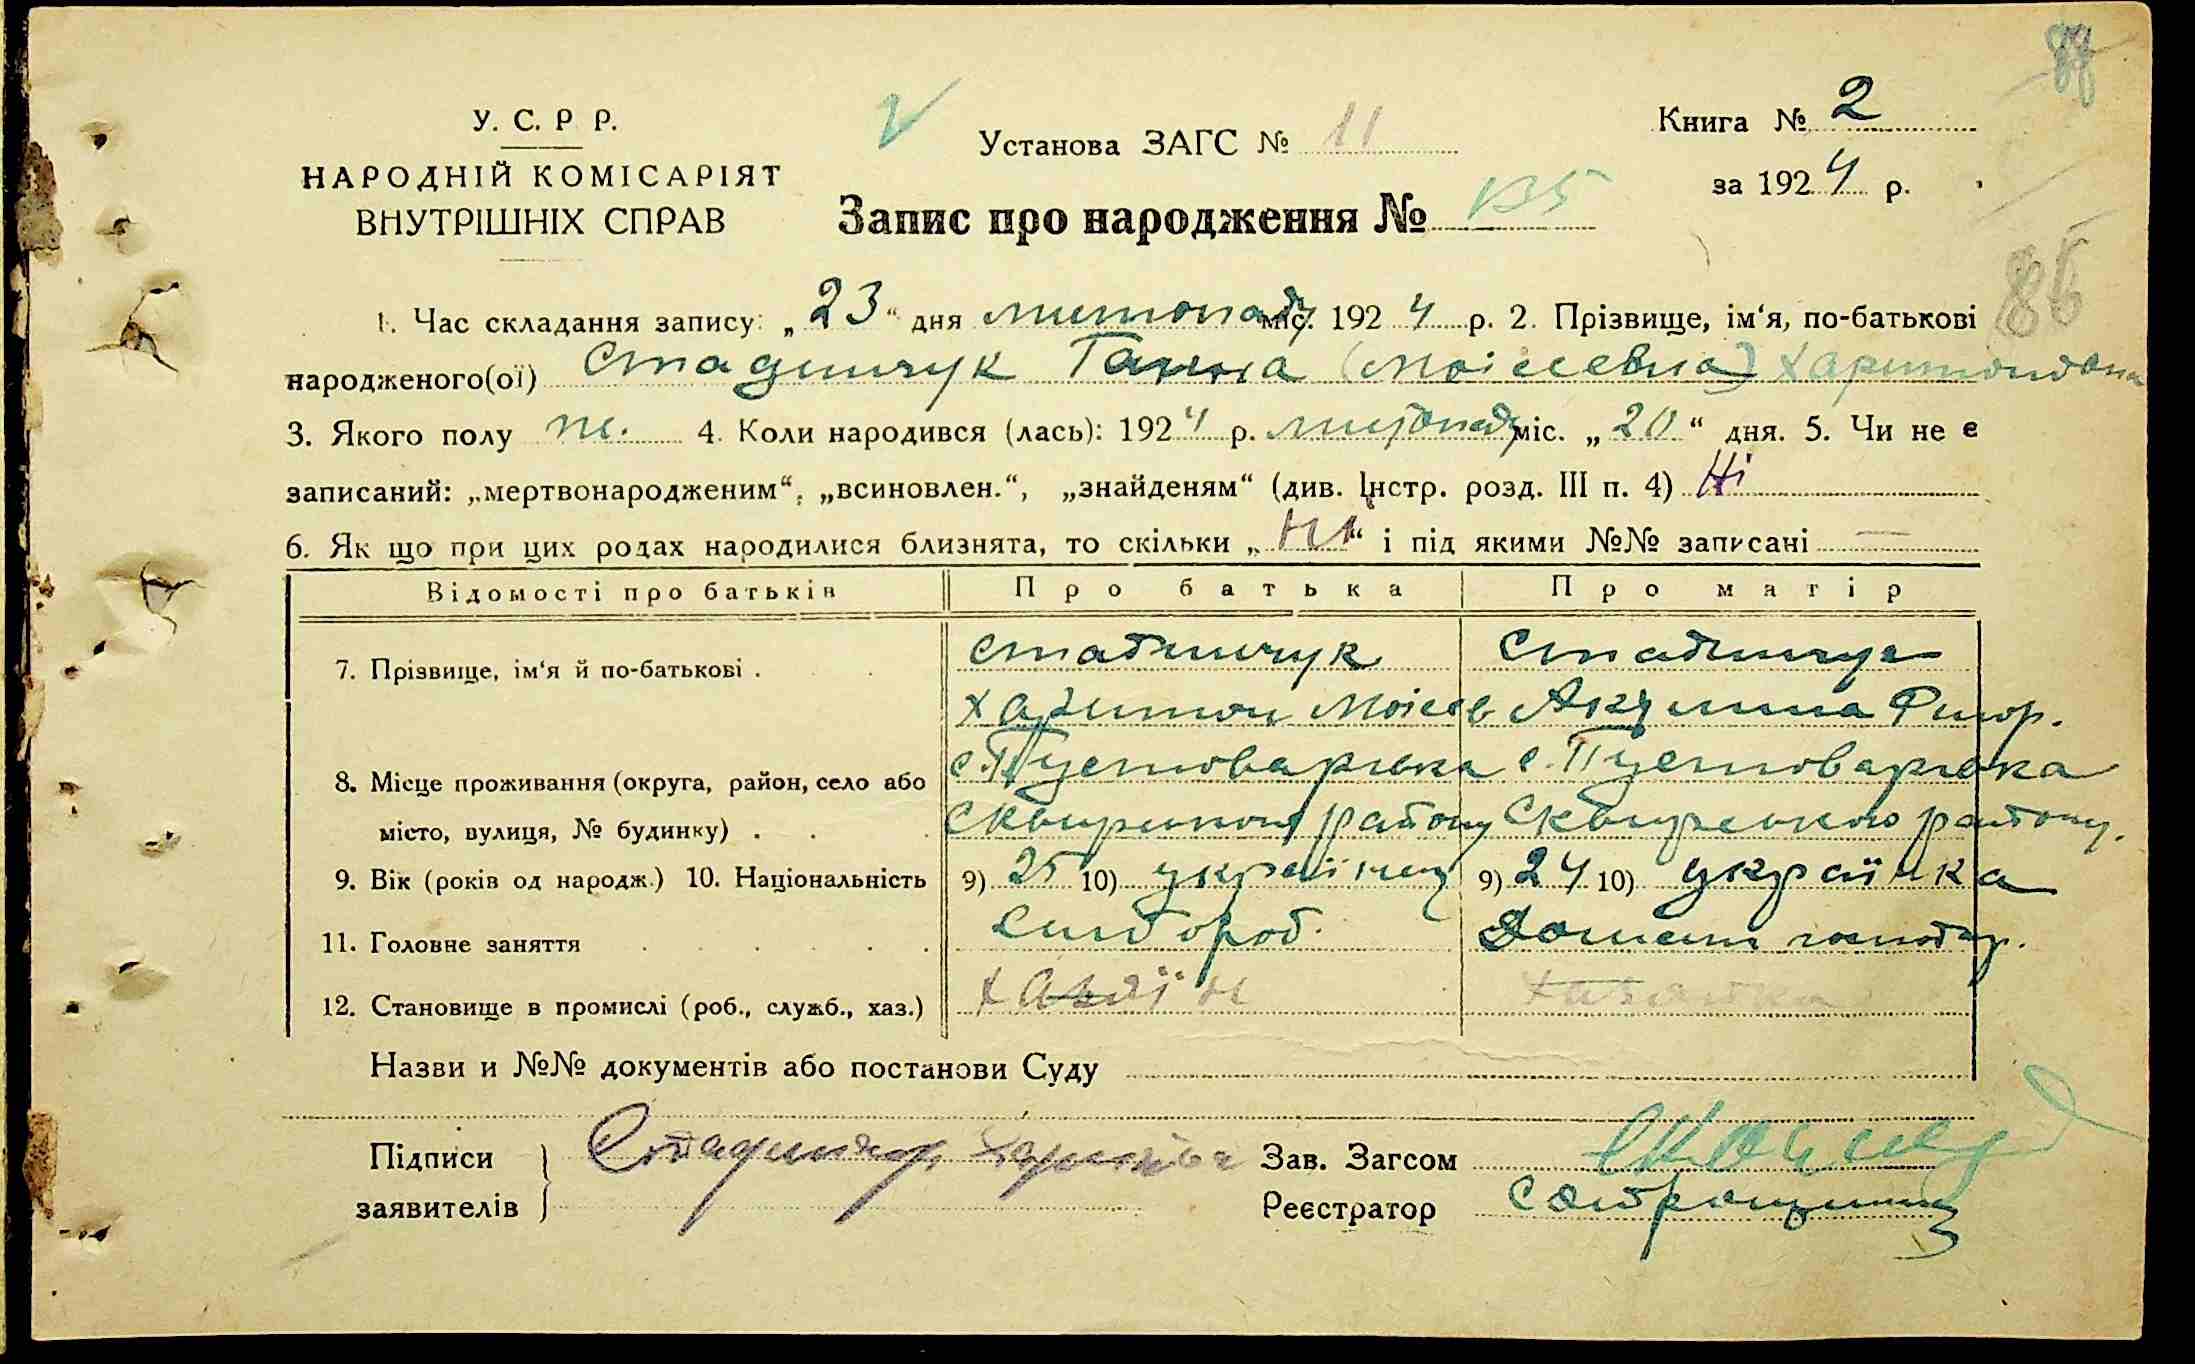 88
У. С. Р. Р.
НАРОДНІЙ КОМІСАРІЯТ
ВНУТРІШНІХ СПРАВ
Установа ЗАГС № 11
Книга № 2
за 1924 р.
Запис про народження № 135
86
1. Час складання запису: „23“ дня листопаду міс. 1924 р. 2. Прізвище, ім‘я, по-батькові
народженого(ої) Стадничук Ганна (Моісеевна) Харитоновна
3. Якого полу ж. 4. Коли народився (лась): 1924 р. листопаду міс. „20“ дня. 5. Чи не є
записаний: „мертвонародженим“, „всиновлен.“, „знайденям“ (див. Інстр. розд. III п. 4) Ні
6. Як що при цих родах народилися близнята, то скільки „Ні“ і під якими №№ записані —
Відомості про батьків Про батька Про матір
7. Прізвище, ім‘я й по-батькові . Стадничук Стадничук
Харитон Моісеев Акулина Фигор.
8. Місце проживання (округа, район, село або с. Пустоварівка с. Пустоварівка
місто, вулиця, № будинку) . Сквирського району Сквирського району.
9. Вік (років од народж.) 10. Національність 9) 25 10) українец 9) 24 10) українка
11. Головне заняття хлібороб. Домашн господар.
12. Становище в промислі (роб., служб., хаз.) хазяїн хазяйка
Назви и №№ документів або постанови Суду
Підписи Стадничук Зав. Загсом
заявителів Реєстратор